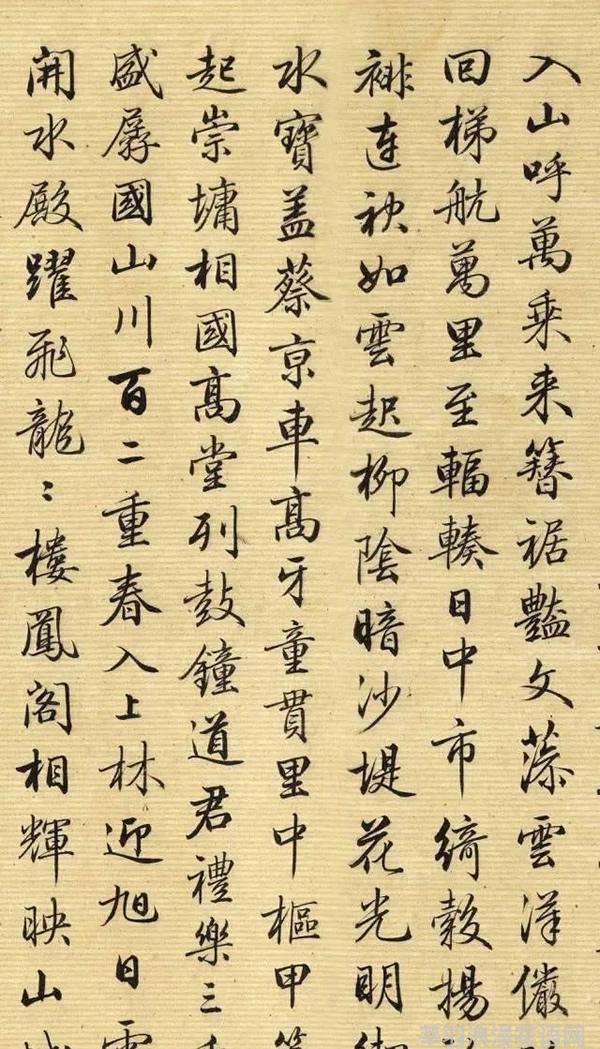 入山呼萬乘来簪裾豔文藻雲漢儼
回梯航萬里至輻輳日中市綺縠揚
褋连袂如雲起柳陰暗沙堤花光明
水寶盖蔡京車髙牙童貫里中樞甲
起崇墉相國髙堂列鼓鐘道君禮樂三
盛孱國山川百二重春入上林迎旭日
開水殿躍飛龍〻樓鳳阁相輝映山